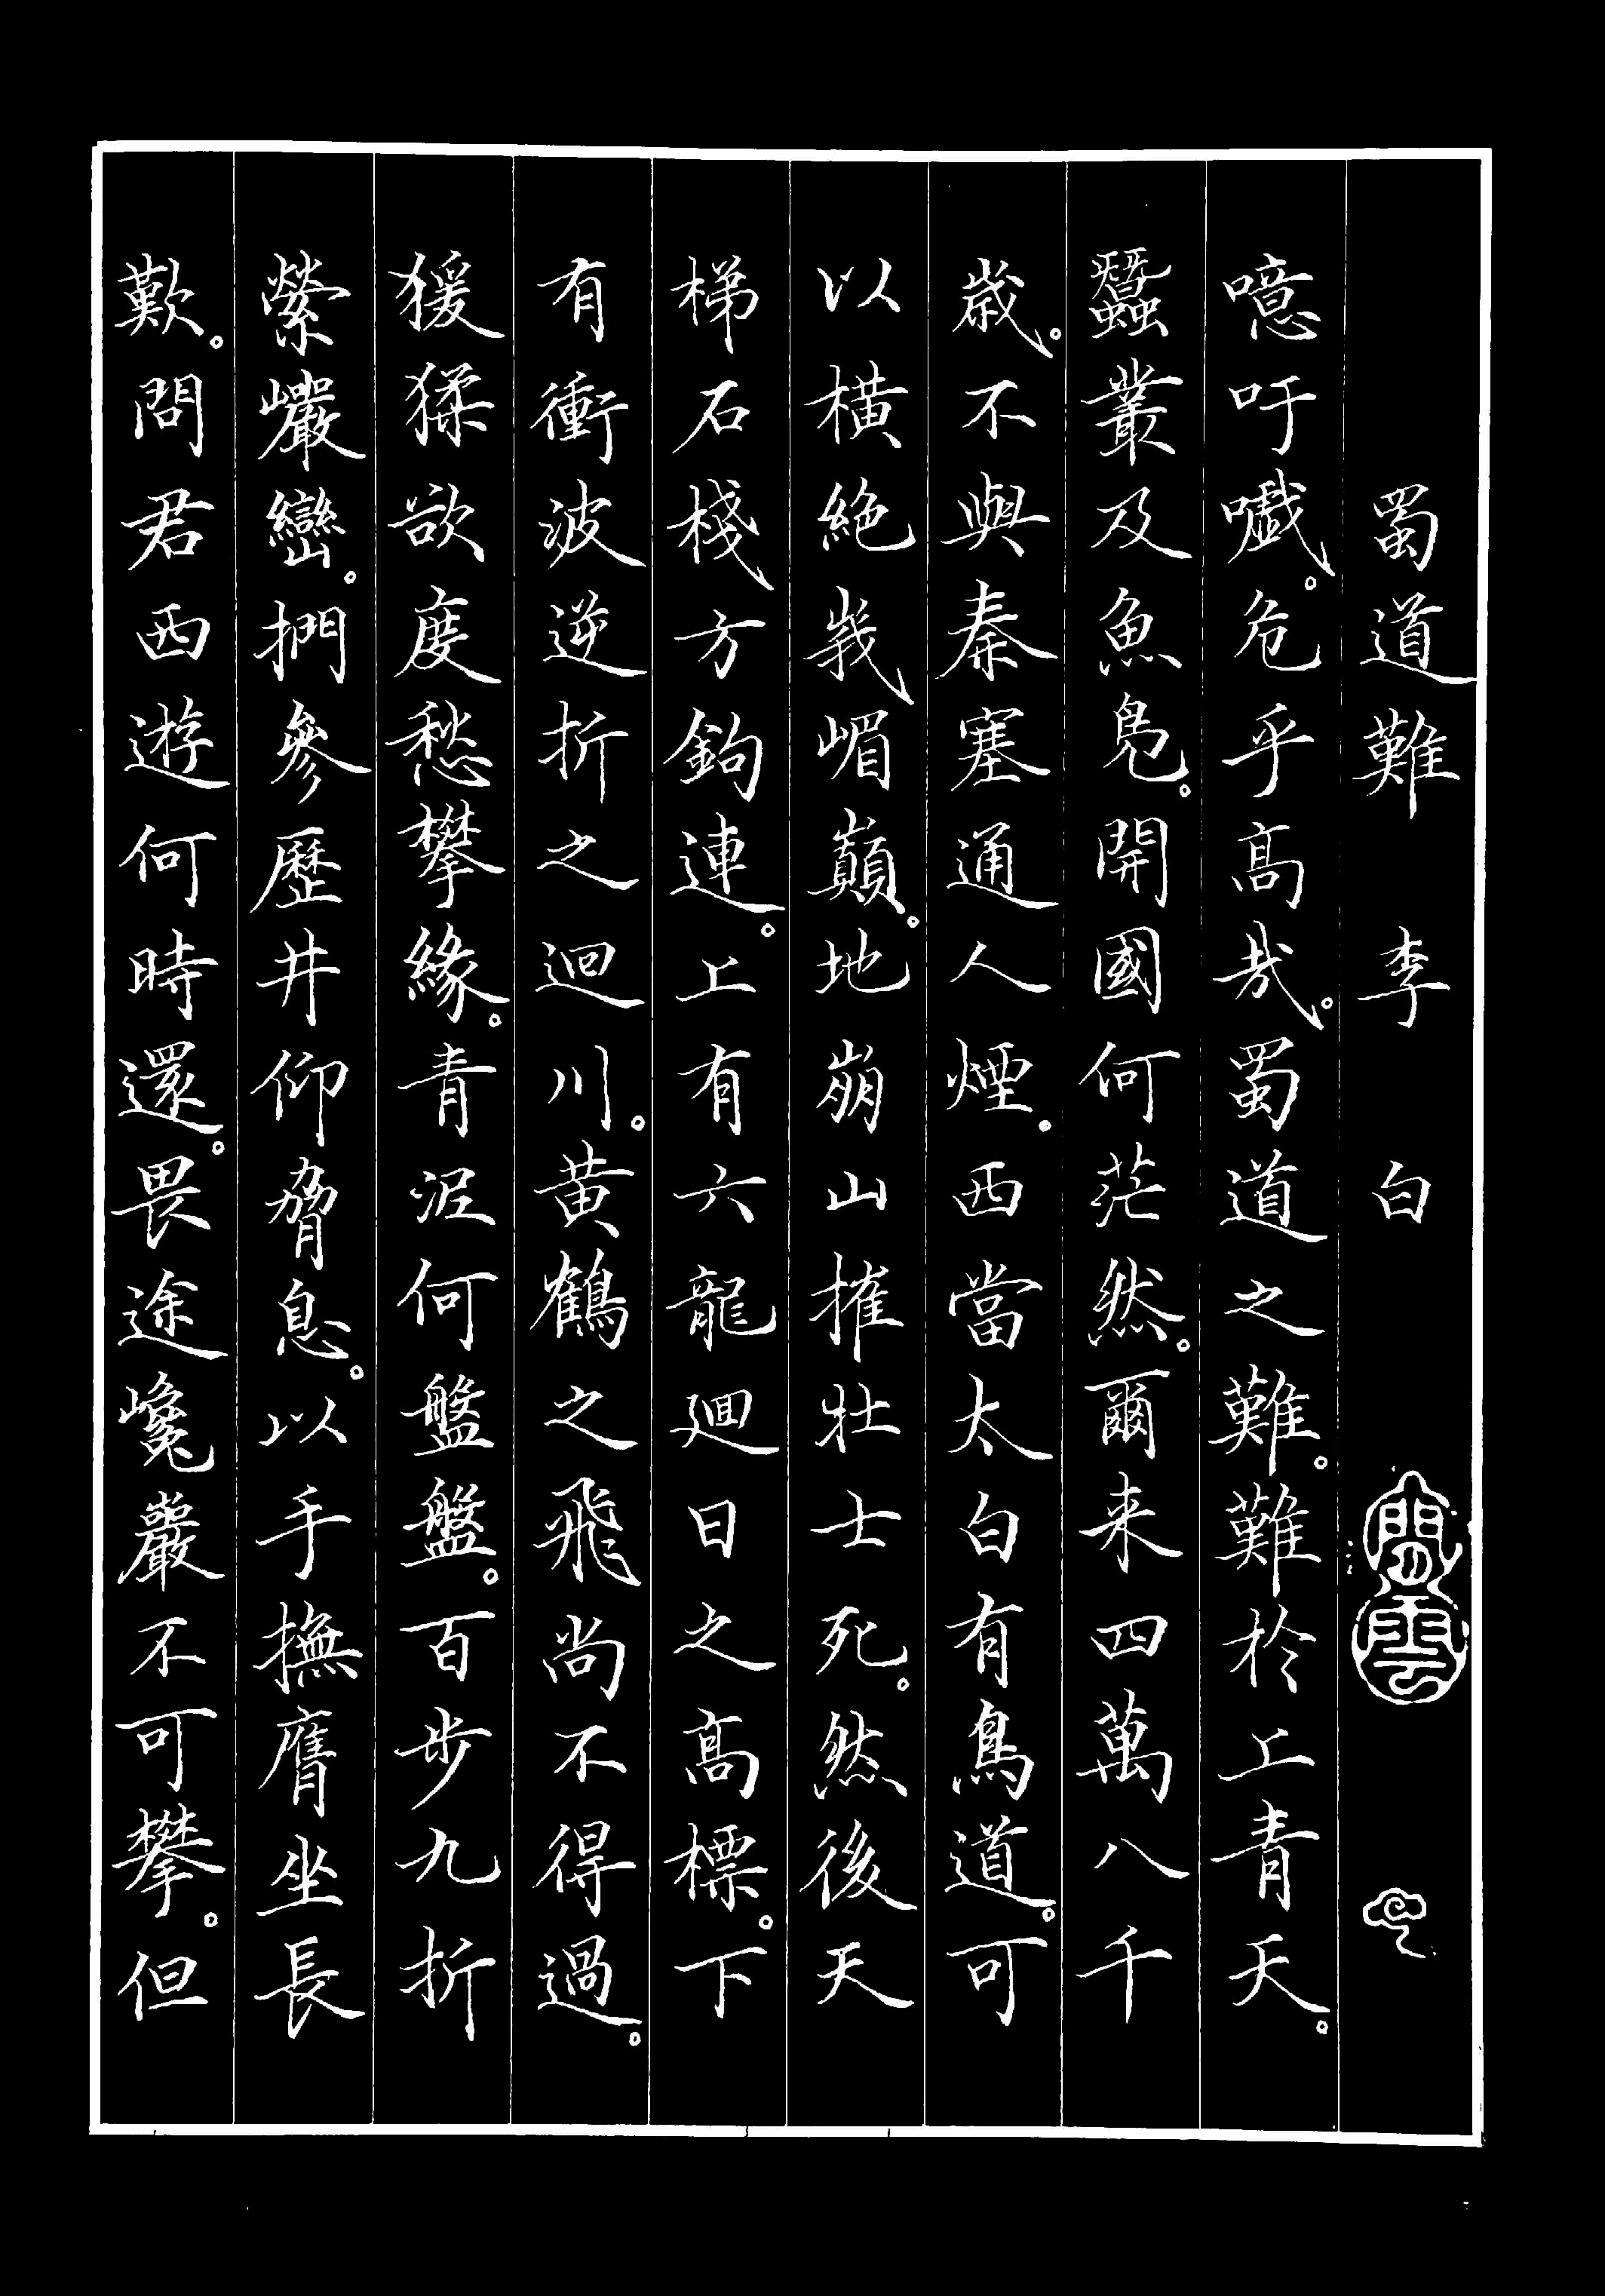 蜀道難 李白 閒雲
噫吁嚱。危乎高哉。蜀道之難。難於上青天。
蠶叢及魚鳧。開國何茫然。爾来四萬八千
歲。不與秦塞通人煙。西當太白有鳥道。可
以橫絶峩嵋巔。地崩山摧壯士死。然後天
梯石棧方鉤連。上有六龍迴日之高標。下
有衝波逆折之迴川。黃鶴之飛尚不得過。
猨猱欲度愁攀緣。青泥何盤盤。百步九折
縈巖巒。捫參歷井仰脅息。以手撫膺坐長
歎。問君西遊何時還。畏途巉巖不可攀。但